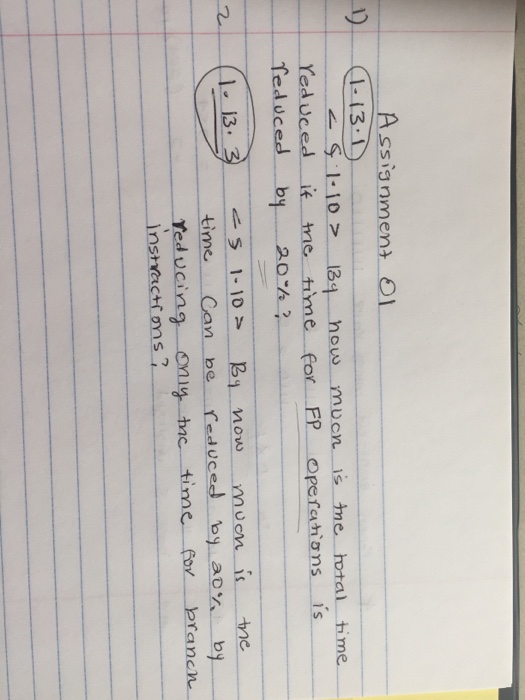 Assignment 01
1) 1.13.1
< § 1.10 > By how much is the total time
reduced if the time for FP operations is
reduced by 20%?
2 1.13.3 < § 1.10 > By how much is the
time can be reduced by 20% by
reducing only the time for branch
instructions?